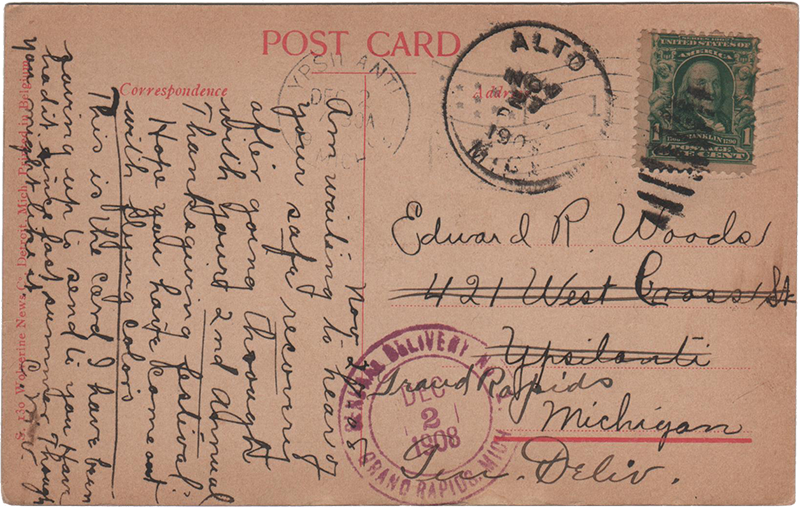 POST CARD
Correspondence
Address
YPSILANTI
DEC
MICH
ALTO
NOV
27
1908
MICH
1
UNITED STATES OF
FRANKLIN
1
1
POSTAGE
ONE CENT
Edward R. Woods
421 West Cross St
Ypsilanti
Grand Rapids
Michigan
Gen. Deliv.
GENERAL DELIVERY
DEC
2
1908
GRAND RAPIDS, MICH
Nov 27
Am waiting to hear of
your safe recovery
after going through
with your 2nd annual
Thanksgiving festival.
Hope you have come out
with flying colors
This is the card I have been
saving up to send to you. Have
had it since last summer, Though
you might like it.
Wolverine News Co., Detroit, Mich. Printed in Belgium